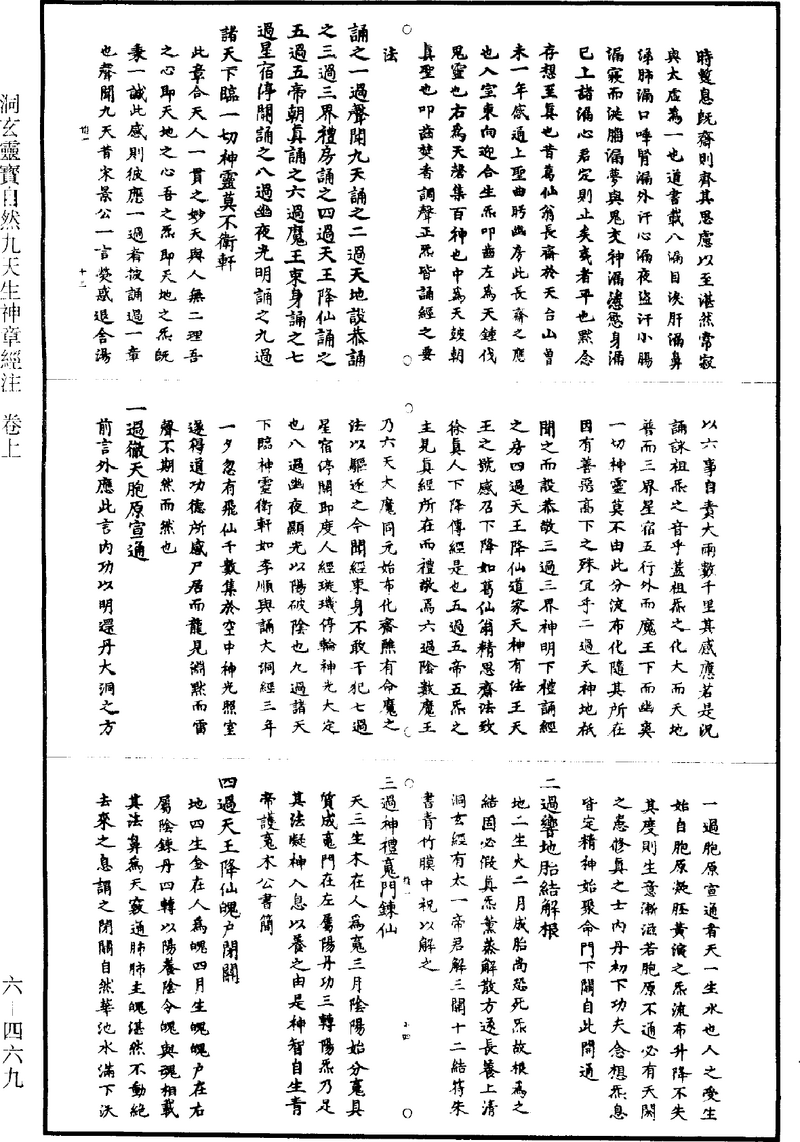 洞玄靈寶自然九天生神章經注　卷上
六—四六九
時整息既齋則齊其思慮以至湛然常寂
與太虛為一也道書載八漏目淚肝漏鼻
涕肺漏口唾腎漏外汗心漏夜盜汗小腸
漏寢而涎腦漏夢與鬼交神漏淫慾身漏
已上諸漏心君定則止矣或者平也默念
存想至真也昔葛仙翁長齋於天台山曾
未一年感通上聖曲眄幽房此長齋之應
也入室東向迎合生炁叩齒左為天鍾伐
鬼靈也右為天磬集百神也中為天鼓朝
真聖也叩齒焚香調聲正炁皆誦經之要
法
誦之一過聲聞九天誦之二過天地設恭誦
之三過三界禮房誦之四過天王降仙誦之
五過五帝朝真誦之六過魔王束身誦之七
過星宿停關誦之八過幽夜光明誦之九過
諸天下臨一切神靈莫不衛軒
此章合天人一貫之妙天與人無二理吾
之心即天地之心吾之炁即天地之炁既
秉一誠此感則彼應一過者披誦過一章
也聲聞九天昔宋景公一言熒惑退舍湯
以六事自責大雨數千里其感應若是況
誦詠祖炁之音乎蓋祖炁之化大而天地
普而三界星宿五行外而魔王下而幽冥
一切神靈莫不由此分流布化隨其所在
因有善惡高下之殊宜乎二過天神地祇
聞之而設恭敬三過三界神明下禮誦經
之房四過天王降仙道家天神有法王天
王之號感召下降如葛仙翁精思齋法致
徐真人下降傳經是也五過五帝五炁之
主見真經所在而禮敬焉六過陰數魔王
乃六天大魔同元始布化齋醮有命魔之
法以驅逐之今聞經束身不敢干犯七過
星宿停關即度人經琁璣停輪神光大定
也八過幽夜顯光以陽破陰也九過諸天
下臨神靈衛軒如李順興誦大洞經三年
一夕忽有飛仙千數集於空中神光照室
遂得道功德所感尸居而龍見淵默而雷
聲不期然而然也
一過徹天胞原宣通
前言外應此言內功以明還丹大洞之方
一過胞原宣通者天一生水也人之受生
始自胞原凝胚黃演之炁流布升降不失
其度則生意漸滋若胞原不通必有夭閼
之患修真之士內丹初下功夫念想炁息
皆定精神始聚命門下關自此開通
二過響地胎結解根
地二生火二月成胎尚恐死炁故根為之
結固必假真炁薰蒸解散方遂長養上清
洞玄經有太一帝君解三關十二結符朱
書青竹膜中祝以解之
三過神禮䰟門鍊仙
天三生木在人為䰟三月陰陽始分䰟具
質成䰟門在左屬陽丹功三轉陽炁乃足
其法凝神入息以養之由是神智自生青
帝護䰟木公書簡
四過天王降仙魄戶閉關
地四生金在人為魄四月生魄魄戶在右
屬陰鍊丹四轉以陽養陰令魄與魂相載
其法鼻為天竅通肺肺主魄湛然不動絕
去來之息謂之閉關自然華池水滿下沃